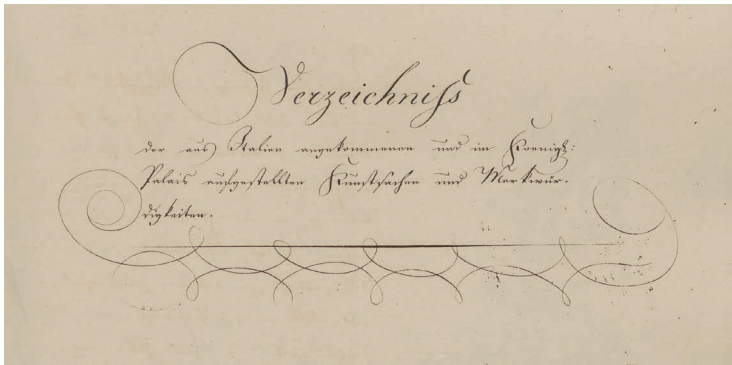 Verzeichniſs
der aus Italien angekommenen und im Koenigl:
Palais aufgestellten Kunstsachen und Merkwür-
digkeiten.